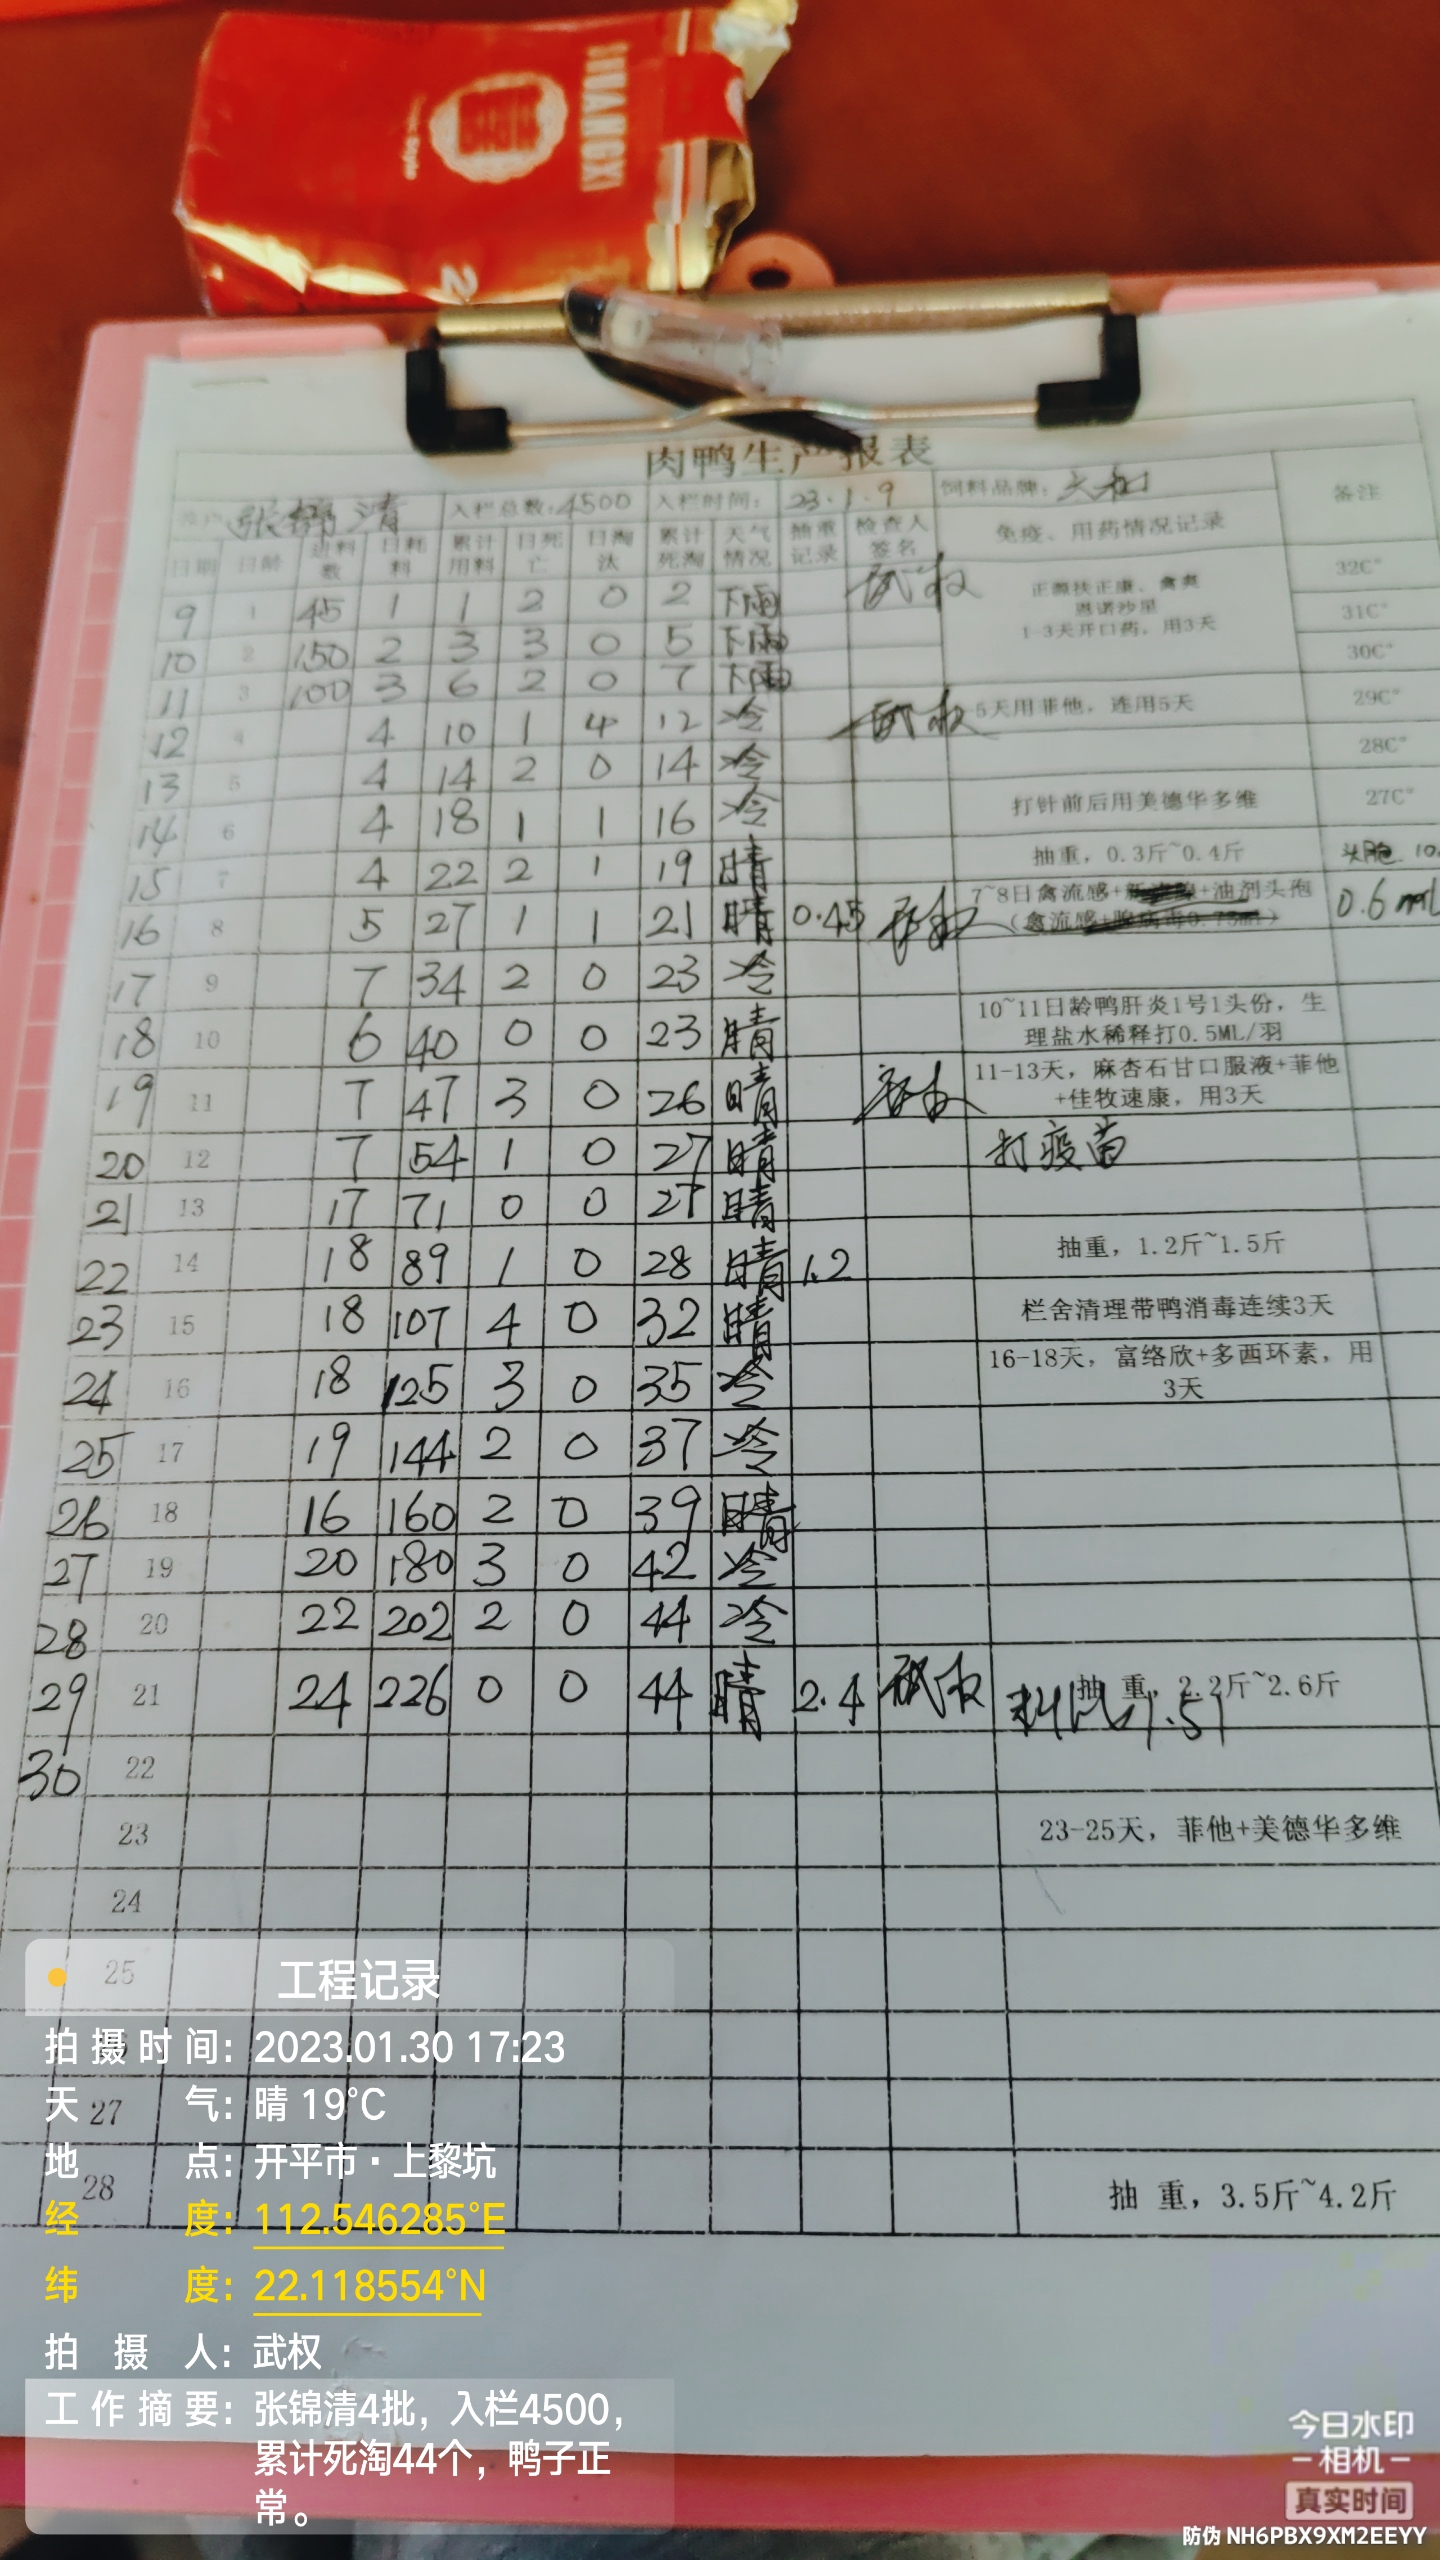 SHUANGXI
2
肉鸭生产报表
张锦清 入栏总数:4500 入栏时间: 23.1.9 饲料品牌: 备注
日期 日龄 进料数 日耗料 累计用料 日死亡 日淘汰 累计死淘 天气情况 抽重记录 检查人签名 免疫、用药情况记录
9 1 45 1 1 2 0 2 下雨 武权 正源扶正康、禽爽 32C°
恩诺沙星
10 2 150 2 3 3 0 5 下雨 1-3天开口药，用3天 31C°
11 3 100 3 6 2 0 7 下雨 30C°
12 4 4 10 1 4 12 冷 武权 5天用菲他，连用5天 29C°
13 5 4 14 2 0 14 冷 28C°
14 6 4 18 1 1 16 冷 打针前后用美德华多维 27C°
15 7 4 22 2 1 19 晴 抽重，0.3斤~0.4斤 头孢 10.
16 8 5 27 1 1 21 晴 0.45 武权 7~8日禽流感+ +油剂头孢 0.6mL
（禽流感+
17 9 7 34 2 0 23 冷
18 10 6 40 0 0 23 晴 10~11日龄鸭肝炎1号1头份，生
理盐水稀释打0.5ML/羽
19 11 7 47 3 0 26 晴 武权 11-13天，麻杏石甘口服液+菲他
+佳牧速康，用3天
20 12 7 54 1 0 27 晴 打疫苗
21 13 17 71 0 0 27 晴
22 14 18 89 1 0 28 晴 1.2 抽重，1.2斤~1.5斤
23 15 18 107 4 0 32 晴 栏舍清理带鸭消毒连续3天
24 16 18 125 3 0 35 冷 16-18天，富络欣+多西环素，用
3天
25 17 19 144 2 0 37 冷
26 18 16 160 2 0 39 晴
27 19 20 180 3 0 42 冷
28 20 22 202 2 0 44 冷
29 21 24 226 0 0 44 晴 2.4 武权 抽 重，2.2斤~2.6斤
料比1.51
30 22
23 23-25天，菲他+美德华多维
24
25
27
28 抽 重，3.5斤~4.2斤
工程记录
拍摄时间: 2023.01.30 17:23
天气: 晴 19°C
地点: 开平市·上黎坑
经度: 112.546285°E
纬度: 22.118554°N
拍摄人: 武权
工作摘要: 张锦清4批，入栏4500，
累计死淘44个，鸭子正
常。
今日水印
-相机-
真实时间
防伪 NH6PBX9XM2EEYY